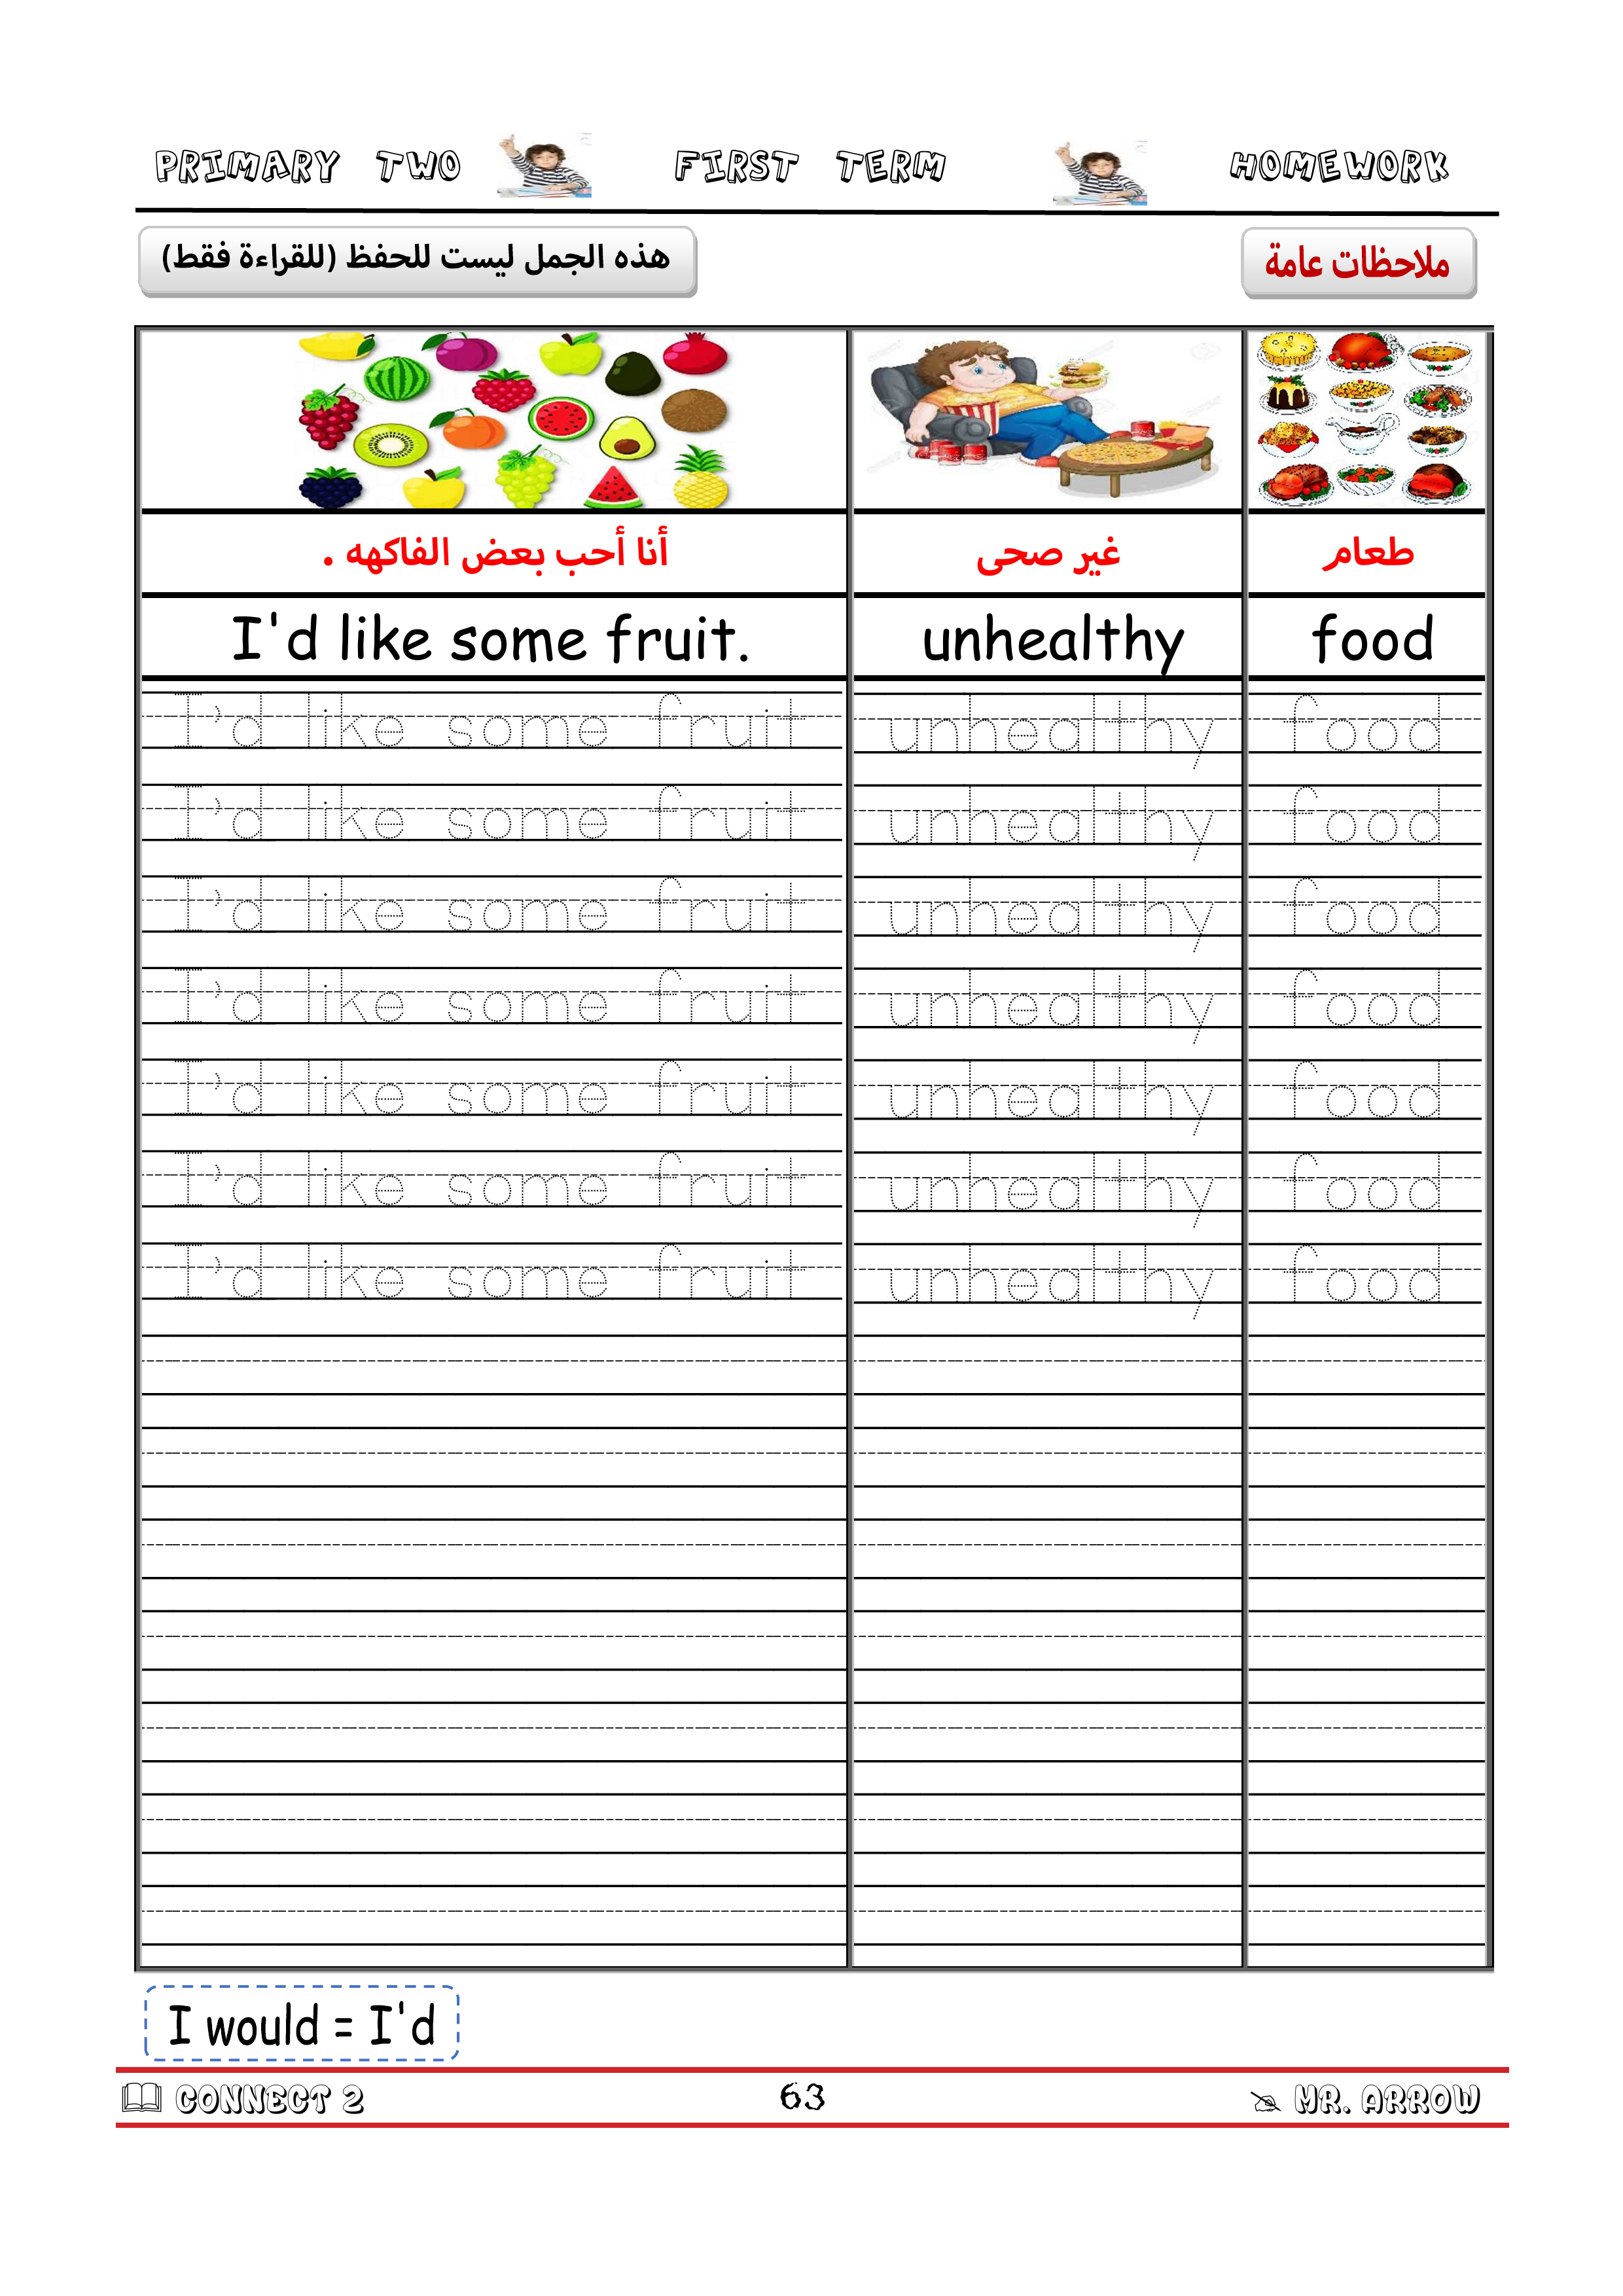 PRIMARY TWO FIRST TERM HOMEWORK
هذه الجمل ليست للحفظ (للقراءة فقط)
ملاحظات عامة
أنا أحب بعض الفاكهه .
غير صحى
طعام
I'd like some fruit.
unhealthy
food
I'd like some fruit unhealthy food
I'd like some fruit unhealthy food
I'd like some fruit unhealthy food
I'd like some fruit unhealthy food
I'd like some fruit unhealthy food
I'd like some fruit unhealthy food
I'd like some fruit unhealthy food
I would = I'd
CONNECT 2 63 MR. ARROW